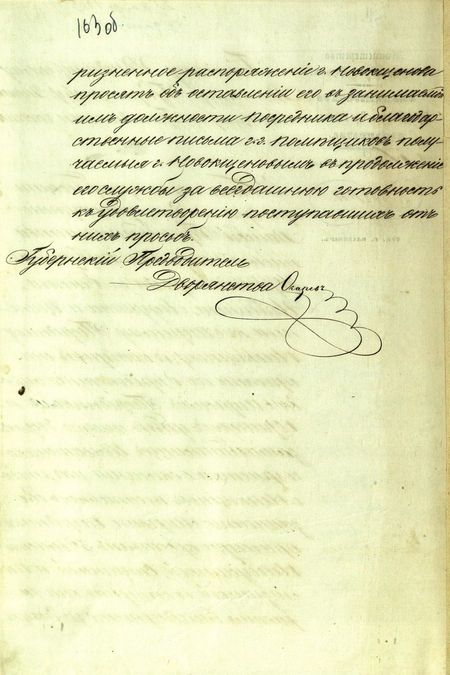 163 об.
ризненное распоряженіе г. Новокщенова
просятъ объ оставленіи его въ занимаемой
имъ должности посредника и благодар-
ственные письма г.г. помѣщиковъ полу-
чаемыя г. Новокщеновымъ въ продолженіе
его службы за всегдашнюю готовность
къ удовлетворенію поступавшихъ отъ
нихъ просьбъ.
Губернскій Предводитель
Дворянства